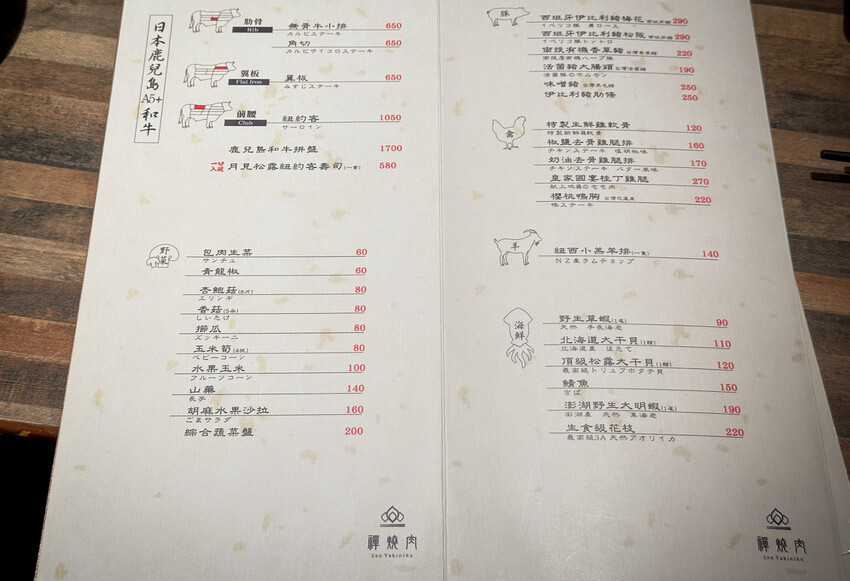 日本鹿兒島A5+和牛
肋骨
Rib
無骨牛小排 650
カルビステーキ
角切 650
カルビサイコロステーキ
翼板
Flat Iron
翼板 650
みすじステーキ
前腰
Club
紐約客 1050
サーロイン
鹿兒島和牛拼盤 1700
一口入魂 月見松露紐約客壽司(一貫) 580
野菜
包肉生菜 60
サンチュ
青龍椒 60
杏鮑菇(8片) 80
エリンギ
香菇(5朵) 80
しいたけ
櫛瓜 80
ズッキーニ
玉米筍(4個) 80
ベビーコーン
水果玉米 100
フルーツコーン
山藥 140
長芋
胡麻水果沙拉 160
ごまサラダ
綜合蔬菜盤 200
禪燒肉
Zen Yakiniku
豚
西班牙伊比利豬梅花 西班牙豬 290
イベリコ豚 肩ロース
西班牙伊比利豬松阪 西班牙豬 290
イベリコ豚トントロ
南投有機香草豬 台灣香草豬 220
南投産有機ハーブ豚
活菌豬大腸頭 台灣活菌豬 190
活菌豚のホルモン
味噌豬 台灣黑毛豬 250
伊比利豬肋條 250
禽
特製生鮮雞軟骨 120
特製新鮮雞軟骨
椒鹽去骨雞腿排 160
チキンステーキ 塩胡椒味
奶油去骨雞腿排 170
チキンステーキ バター風味
皇家國宴桂丁雞腿 270
櫻桃鴨胸 台灣宜蘭產 220
鴨ステーキ
羊
紐西小羔羊排(一隻) 140
NZ産ラムチョップ
海鮮
野生草蝦(1尾) 90
天然 手長海老
北海道大干貝(1顆) 110
北海道産 ほたて
頂級松露大干貝(1顆) 120
最高級トリュフホタテ貝
鯖魚 150
さば
澎湖野生大明蝦(1尾) 190
澎湖産 天然 車海老
生食級花枝 220
最高級3A天然アオリイカ
禪燒肉
Zen Yakiniku